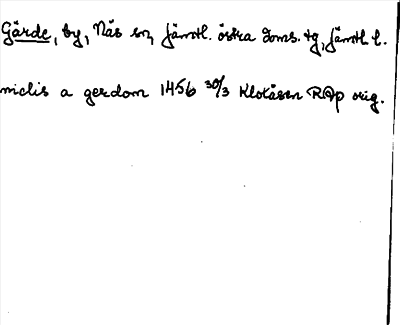 Gärde, by, Näs sn, Jämtl. östra doms. tg, Jämtl. l.
niclis a gerdom 1456 30/3 Klotåsen RAp orig.